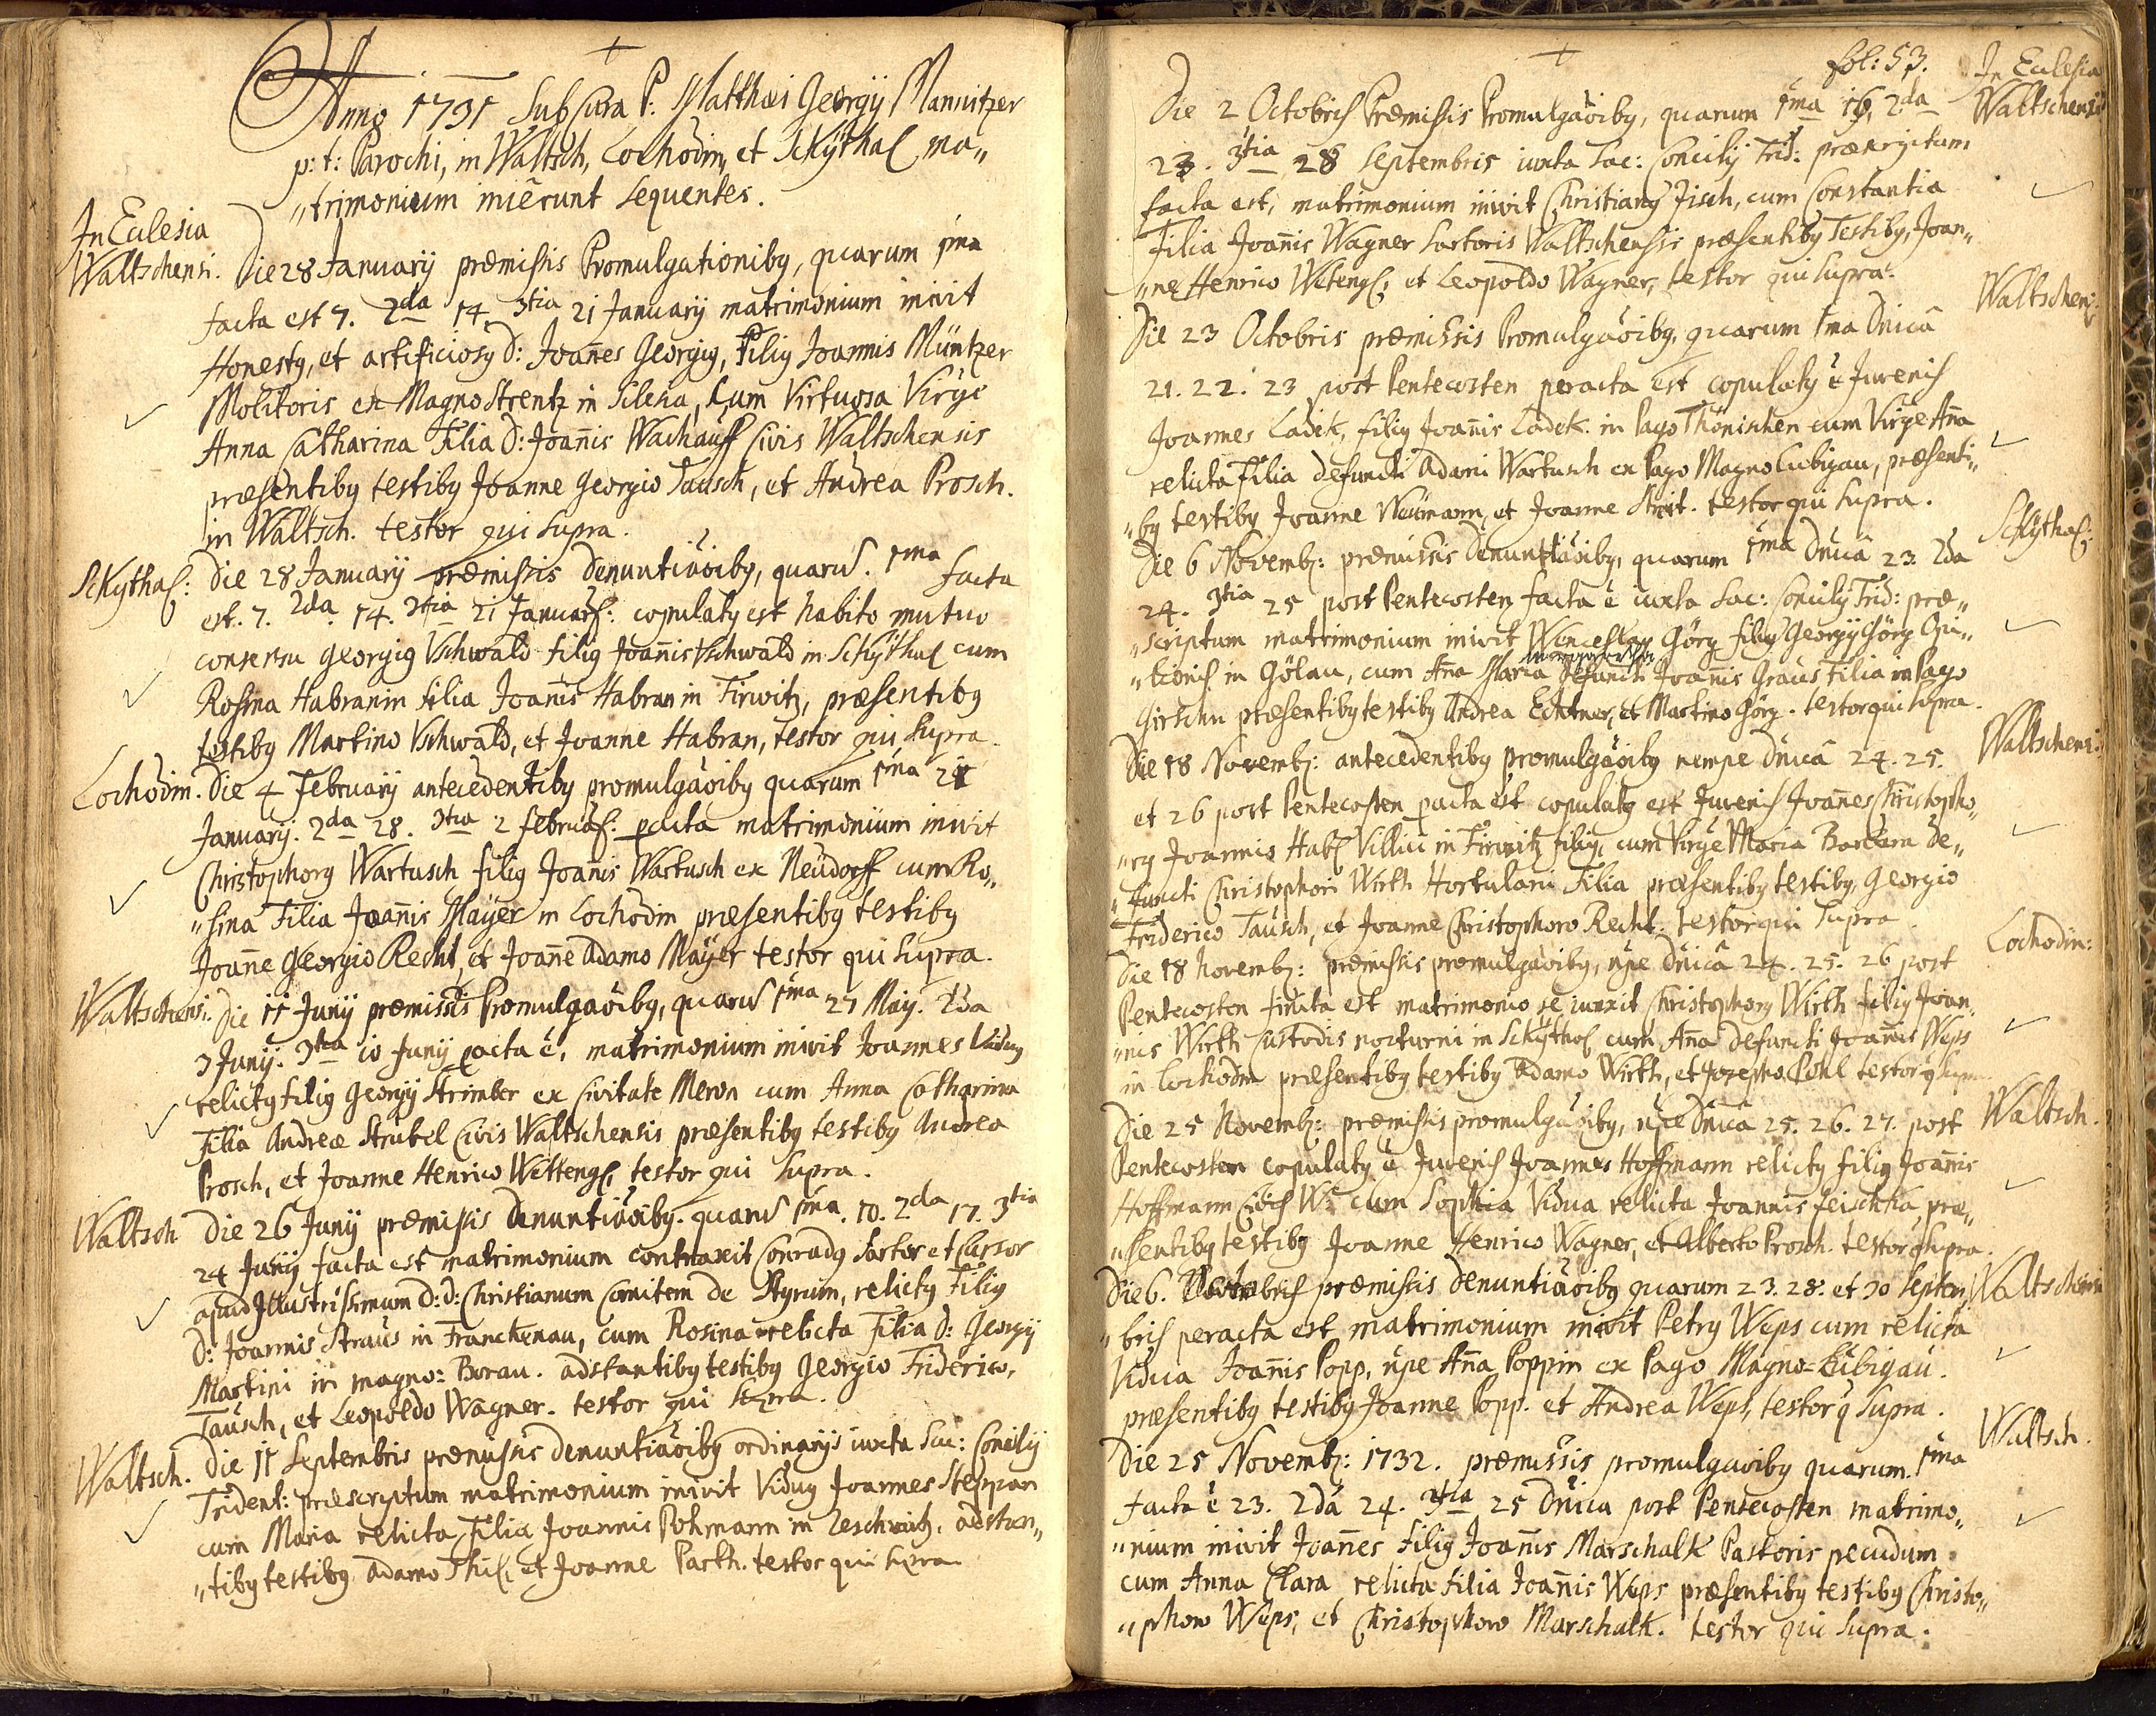 Anno 1731 Sub Cura P: Matthæi Georgij Mannitzer
p: t: Parochi, in Waltsch, Lochodin, et Sckÿthal ma„
„trimonium inierunt Sequentes.
In Eclesia
Waltschensi. Die 28 January præmissis Promulgationiby, quarum 1ma
facta est 7. 2da 14. 3tia 21 January matrimonium inivit
Honesty, et artificiosy D: Joañes Georgiy, Filiy Joannis Müntzer
Molitoris ex Magno Strentz in Silesia, cum Virtuosa Virge
Anna Catharina Filia D: Joañis Wachauff Civis Waltschensis
præsentiby testiby Joanne Georgio Tausch, et Andrea Prosch.
in Waltsch. testor qui supra.
Sckythal: Die 28 January præmissis Denuntiaoiby, quarũ. 1ma facta
est. 7. 2da 14. 3tia 21 Januar: copulaty est habito mutuo
consensu Georgiy Vschwald filiy Joañis Vschwald in Sckÿthal cum
Rosina Habranin filia Joanis Habran in Tirwitz, præsentiby
testiby Martino Vschwald, et Joanne Habran, testor qui supra.
Lochodin. Die 4 February antecedentiby promulgaoiby quarum 1ma 21
January. 2da 28. 3tia 2 februar: pacta matrimonium inivit
Christophory Wartusch filiy Joañis Wartusch ex Neüdorff cum Ro„
„sina Filia Joañis Mayer in Lochodin præsentiby testiby
Joañe Georgio Recht, et Joañe Adamo Maÿer testor qui supra.
Waltschensi. Die 11 Junij præmissis Promulgaoiby, quarũ 1ma 27 May. 2da
3 Junij. 3tia 10 Junij pacta ē, matrimonium inivit Joannes Viduy
relicty filiy Georgij Strimber ex Civitate Meron cum Anna Catharina
Filia Andreæ Strübel Civis Waltschensis præsentiby testiby Andrea
Prosch, et Joanne Henrico Wettengl, testor qui supra.
Waltsch Die 26 Junij præmissis denuntiaoiby. quarũ 1ma. 10. 2da 17. 3tia
24 Junij facta est matrimonium contraxit Conrady Sartor et Cursor
apud Illustrissimum D: D: Christianum Comitem de Styrum, relicty Filiy
D: Joannis Straus in Franckenau, cum Rosina relicta Filia D: Georgij
Martini in magno= Borau. adstantiby testiby Georgio Friderico,
Tausch, et Leopoldo Wagner. testor qui supra.
Waltsch. Die 11 Septembris præmissis denuntiaoiby ordinarijs iuxta Sac: Concilij
Trident: præscriptum matrimonium inivit Viduy Joannes Steppan
cum Maria relicta Filia Joannis Pohmann in Zeschwitz. adstan„
„tiby testiby Adamo Thil, et Joanne Parth. testor qui supra
fol: 53.
In Eclesia
Waltschensi
Die 2 Octobris Præmissis Promulgaoiby, quarum 1ma 16. 2da
23. 3tia 28 Septembris iuxta Sac: Concilij Trid: præscriptum
facta est, matrimonium inivit Christiany Fisch, cum Constantia
Filia Joañis Wagner Sartoris Waltschensis præsentiby Testiby, Joan„
„ne Henrico Wetengl, et Leopoldo Wagner, testor qui supra.
Waltschens:
Die 23 Octobris præmissis Promulgaoiby, quarum 1ma Dnicâ
21. 22. 23 post Pentecosten peracta est copulaty ē Juvenis
Joannes Ladek, filiy Joañis Ladek in Pago Thönischen cum Virge Aña
relicta Filia defuncti Adami Wartusch ex Pago Magno Lubigau, præsenti„
„by testiby Joanne Neümann, et Joanne Streit. testor qui supra.
Sckÿthal:
Die 6 Novemb: præmissis Denuntiaoiby, quarum 1ma Dnicâ 23. 2da
24. 3tia 25 post Pentecosten facta ē iuxta Sac: Concilij Trid: præ„
„scriptum matrimonium inivit Wenceslay Görg filiy Georgij Görg Opi„
„lionis in Gölau, cum Aña Maria defuncti Joanis Graus Filia in Pago
Girschen præsentiby testiby Andrea Echtner, et Martino Görg. testor qui supra.
Waltschens:
Die 18 Novemb: antecedentiby promulgaoiby nempe Dnicâ 24. 25.
et 26 post Pentecosten pacta est copulaty est Juvenis Joañes Christopho„
„ry Joannis Habl Villici in Tirwitz filiy, cum Virge Maria Barbara de„
„functi Christophori Wirth Hortulani Filia præsentiby testiby, Georgio
Friderico Tausch, et Joanne Christophoro Recht. testor qui supra
Lochodin:
Die 18 Novemb: præmissis promulgaoiby, npe Dnicâ 24. 25. 26 post
Pentecosten finita est matrimonio se iunxit Christophory Wirth filiy Joan„
„nis Wirth Custodis nocturni in Sckÿthal cum Aña defuncti Joañis Weps
in Lochodin præsentiby testiby Adamo Wirth, et Josepho Pohl testor q supra
Waltsch.
Die 25 Novemb: præmissis promulgaoiby, npe Dnicâ 25. 26. 27. post
Pentecosten copulaty ē Juvenis Joannes Hoffmann relicty filiy Joañis
Hoffmann Civis W: cum Sophia Vidua relicta Joannis Feischka præ„
„sentiby testiby Joanne Henrico Wagner, et Alberto Prosch. testor q supra.
Waltschensi
Die 6. Octobris præmissis denuntiaoiby quarum 23. 28. et 30 Septem„
„bris peracta est matrimonium inivit Petry Weps cum relicta
Vidua Joañis Popp, npe Aña Poppin ex Pago Magno=Lübigau.
præsentiby testiby Joanne Popp. et Andrea Weps, testor q supra.
Waltsch.
Die 25 Novemb: 1732. præmissis promulgaoiby quarum. 1ma
facta ē 23. 2da 24. 3tia 25 Dnica post Pentecosten matrimo„
„nium inivit Joañes Filiy Joañis Marschalk Pastoris pecudum
cum Anna Clara relicta filia Joañis Weps præsentiby testiby Christo„
„phoro Weps, et Christophoro Marschalk. testor qui supra.